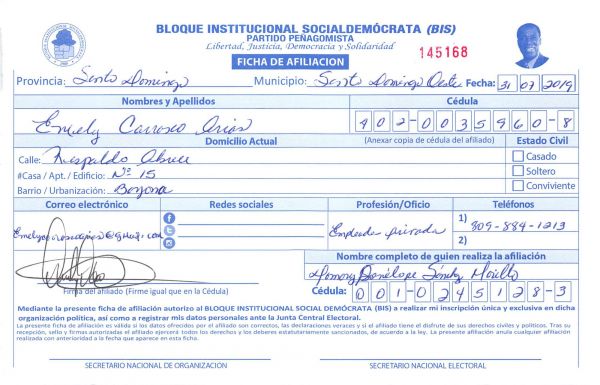 BLOQUE INSTITUCIONAL SOCIALDEMÓCRATA (BIS)
PARTIDO PEÑAGOMISTA
Libertad, Justicia, Democracia y Solidaridad
145168
FICHA DE AFILIACION
Provincia: Santo Domingo Municipio: Santo Domingo Oeste Fecha: 31 07 2019
Nombres y Apellidos Cédula
Emely Carrasco Arias 402-0035960-8
Domicilio Actual (Anexar copia de cédula del afiliado) Estado Civil
Calle: Respaldo Abreu Casado
#Casa / Apt. / Edificio: Nº 15 Soltero
Barrio / Urbanización: Bayona Conviviente
Correo electrónico Redes sociales Profesión/Oficio Teléfonos
Empleada privada 1) 809-884-1213
2)
Nombre completo de quien realiza la afiliación
Penélope Sánchez
Firma del afiliado (Firme igual que en la Cédula) Cédula: 001-0245128-3
Mediante la presente ficha de afiliación autorizo al BLOQUE INSTITUCIONAL SOCIAL DEMÓCRATA (BIS) a realizar mi inscripción única y exclusiva en dicha
organización política, así como a registrar mis datos personales ante la Junta Central Electoral.
La presente ficha de afiliación es válida si los datos ofrecidos por el afiliado son correctos, las declaraciones veraces y si el afiliado tiene el disfrute de sus derechos civiles y políticos. Tras su
recepción, sello y firmas autorizadas el afiliado ejercerá todos los derechos y los deberes estatutariamente sancionados, de acuerdo a la ley. La presente afiliación anula cualquier afiliación
realizada con anterioridad a la fecha que aparece en esta ficha.
SECRETARIO NACIONAL DE ORGANIZACIÓN SECRETARIO NACIONAL ELECTORAL